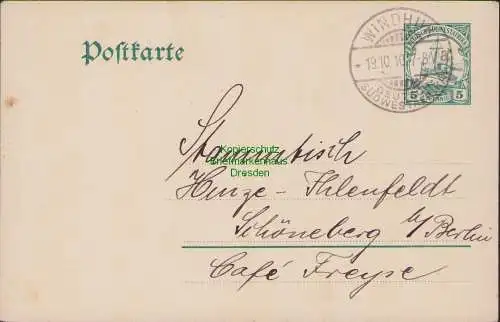 WINDHUK
Postkarte
19.10.10. 7-8V
DEUTSCH-
SÜDWESTAFRIKA
5 5
Stammtisch
Kopierschutz
Briefmarkenhaus
Dresden
Hinze-Ihlenfeldt
Schöneberg b/Berlin
Café Freyse